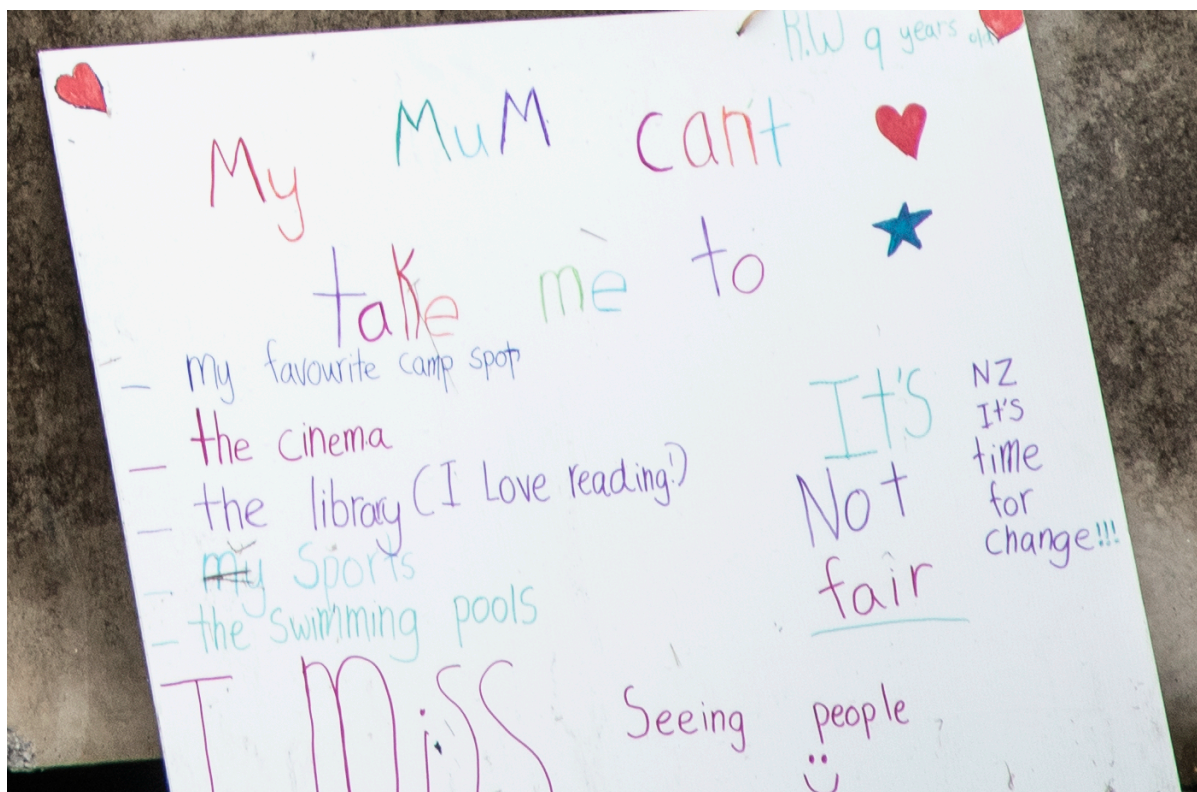 R.W 9 years old
My MuM can't
take me to
- my favourite camp spot
- the cinema
- the library (I Love reading!)
- my Sports
- the swimming pools
It's
Not
fair
NZ
It's
time
for
change!!!
I Miss Seeing people